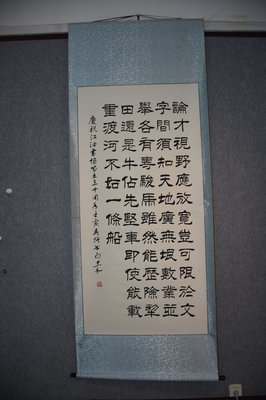 論才視野應放寬豈可限於文
字間須知天地廣無垠數業並
舉各有專駿馬雖然能歷險犁
田還是牛佔先堅車即使能載
重渡河不如一條船
慶祝江油書協成立三十周年壬寅